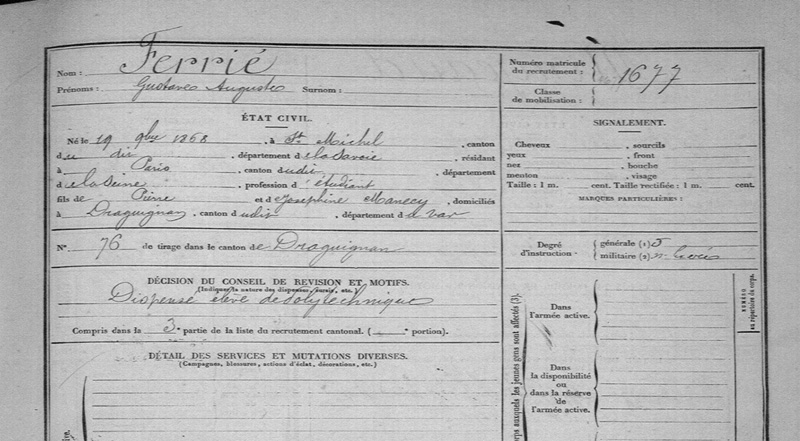 Nom : Ferrié
Prénoms : Gustave Auguste Surnom :
Numéro matricule du recrutement : 1677
Classe de mobilisation :
ÉTAT CIVIL.
Né le 19 9bre 1868, à St Michel, canton
du dit, département de la Savoie, résidant
à Paris, canton dudit, département
de la Seine, profession d'étudiant
fils de Pierre et de Joséphine Manecy, domiciliés
à Draguignan, canton dudis, département du Var
SIGNALEMENT.
Cheveux , sourcils
yeux , front
nez , bouche
menton , visage
Taille : 1 m. cent. Taille rectifiée : 1 m. cent.
MARQUES PARTICULIÈRES :
N° 76 de tirage dans le canton de Draguignan
Degré d'instruction : générale (1) 5
militaire (2)
DÉCISION DU CONSEIL DE REVISION ET MOTIFS.
(Indiquer la nature des dispenses, sursis, etc.)
Dispensé élève de Polytechnique
Compris dans la 3e partie de la liste du recrutement cantonal. ( portion).
DÉTAIL DES SERVICES ET MUTATIONS DIVERSES.
(Campagnes, blessures, actions d'éclat, décorations, etc.)
corps auxquels les jeunes gens sont affectés (3).
Dans l'armée active.
Dans la disponibilité ou dans la réserve de l'armée active.
NUMÉRO au répertoire du corps.